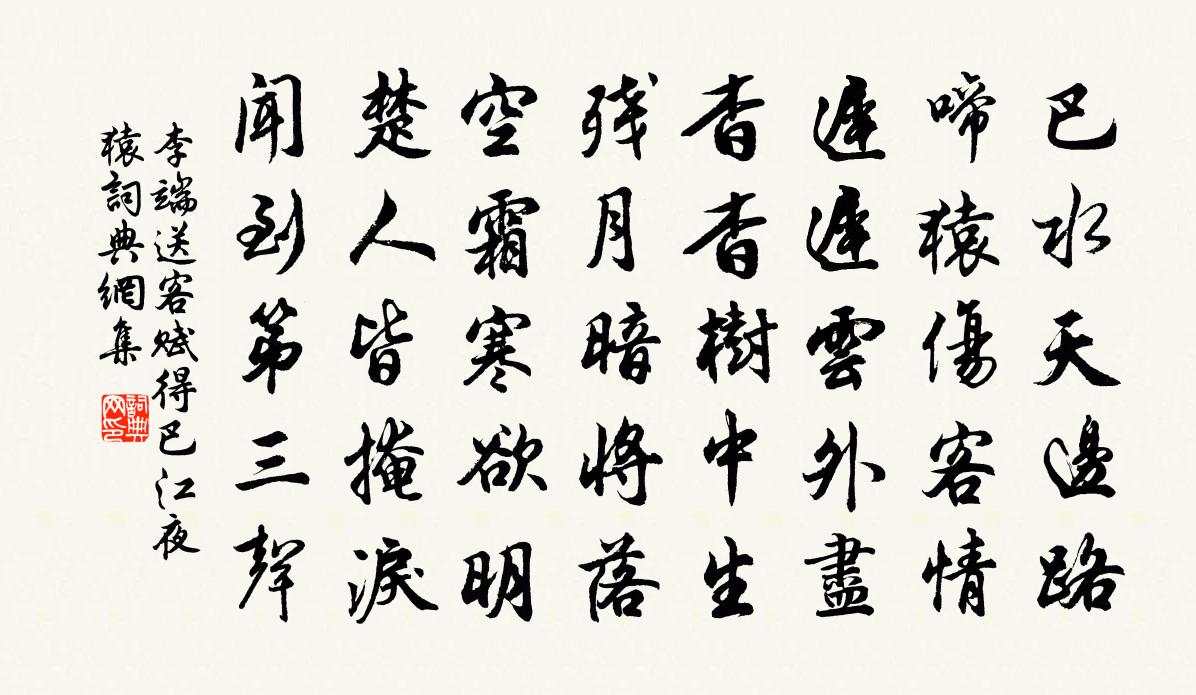 巴水天邊路
啼猿傷客情
遲遲雲外盡
杳杳樹中生
残月暗将落
空霜寒欲明
楚人皆掩淚
聞到第三聲
李端送客赋得巴江夜
猿詞典網集
詞典
网印